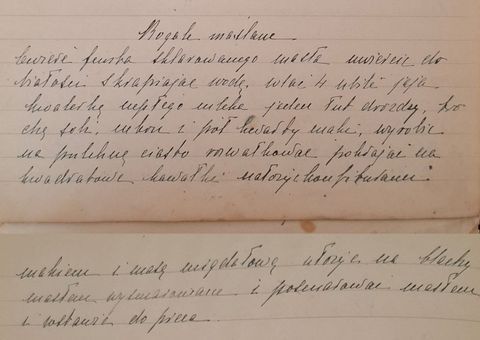 Rogale maślane.
Ćwierć funta sklarowanego masła uwiercić do
białości skrapiając wodą, wlać 4 ubite jaja
kwaterkę ciepłego mleka jeden łut drożdży, tro
chę soli, mleka i pół kwarty mąki, wyrobić
na pulchne ciasto rozwałkować pokrajać na
kwadratowe kawałki nałożyć konfiturami
makiem i masą migdałową ułożyć na blachy
masłem wysmarowane i posmarować masłem
i wstawić do pieca.